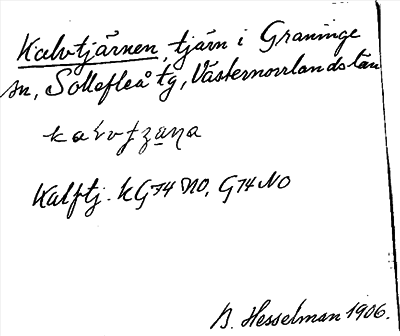 Kalvtjärnen, tjärn i Graninge
sn, Sollefteå tg, Västernorrlands län
Kalftj. kG74 NO, G74NO
B. Hesselman 1906.